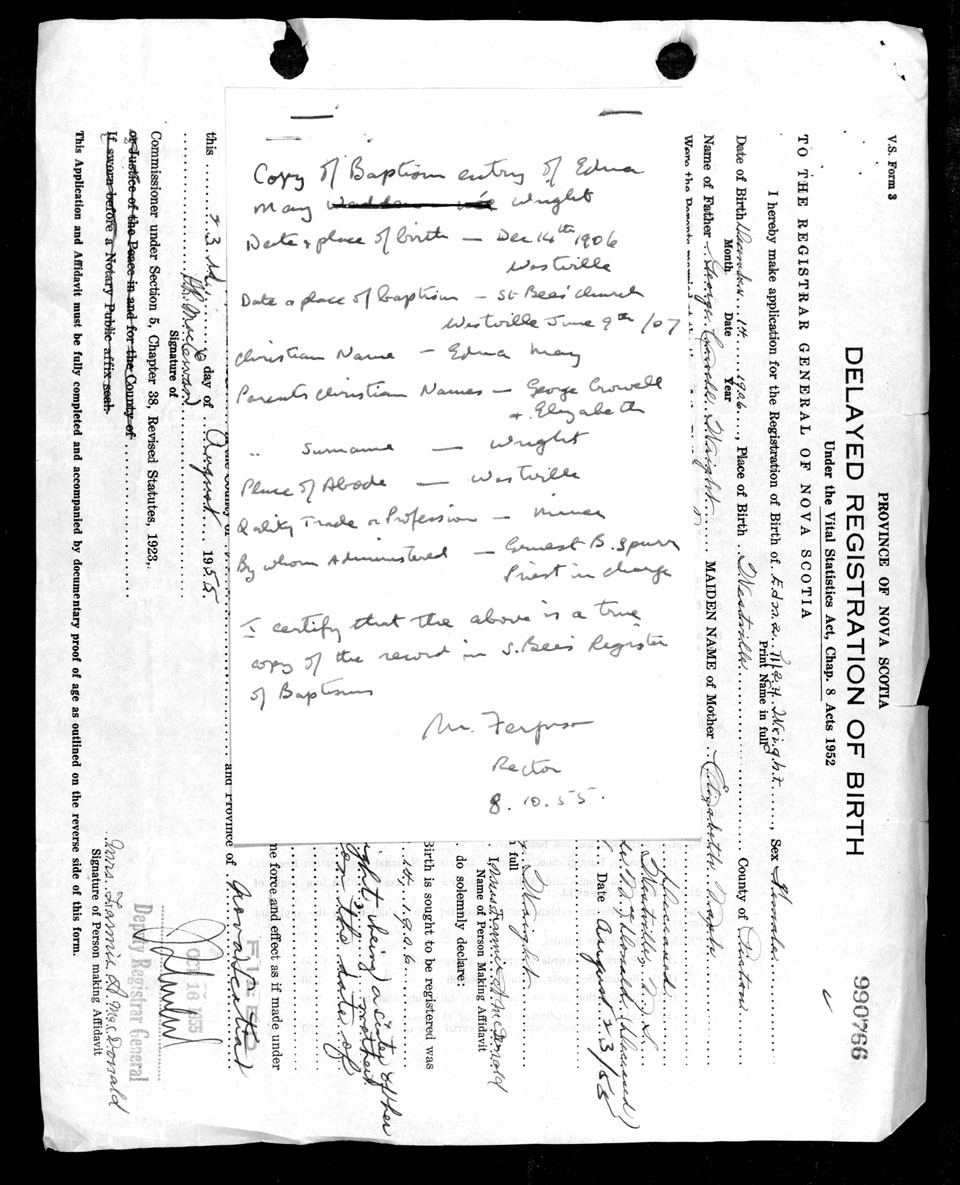 Copy of Baptism entry of Edna
May Wright
Date & place of birth – Dec 14th 1906
Westville
Date & place of baptism – St Bees' Church
Westville June 9th /07
Christian Name – Edna May
Parents Christian Names – George Crowell
& Elizabeth
" Surname – Wright
Place of Abode – Westville
Quality Trade or Profession – Miner
By whom Administered – Ernest B. Spurr
Priest in charge
I certify that the above is a true
copy of the record in S. Bees Register
of Baptisms
M. Ferguson
Rector
8.10.55.
V.S. Form 3
PROVINCE OF NOVA SCOTIA
Under the Vital Statistics Act, Chap. 8 Acts 1952
DELAYED REGISTRATION OF BIRTH
990766
TO THE REGISTRAR GENERAL OF NOVA SCOTIA
I hereby make application for the Registration of Birth of Edna May Wright, Sex Female
Print Name in full
Date of Birth December 14 1906, Place of Birth Westville County of Pictou
Month Date Year
Name of Father George Crowell Wright MAIDEN NAME of Mother Elizabeth
Were the Parents married
Deceased
Westville, N.S.
McDonald (Deceased)
Date August 23/55
full
Wright
I, Mrs Fannie A McDonald
Name of Person Making Affidavit
do solemnly declare
Birth is sought to be registered was
14, 1906
Wright being a sister of her
mother
on the date of
me force and effect as if made under
and Province of Nova Scotia
this 23 day of August 1955.
Signature of
Commissioner under Section 5, Chapter 38, Revised Statutes, 1923,
or Justice of the Peace in and for the County of
If sworn before a Notary Public affix seal.
FILED
OCT 18 1955
Deputy Registrar General
Mrs. Fannie A McDonald
Signature of Person making Affidavit
This Application and Affidavit must be fully completed and accompanied by documentary proof of age as outlined on the reverse side of this form.